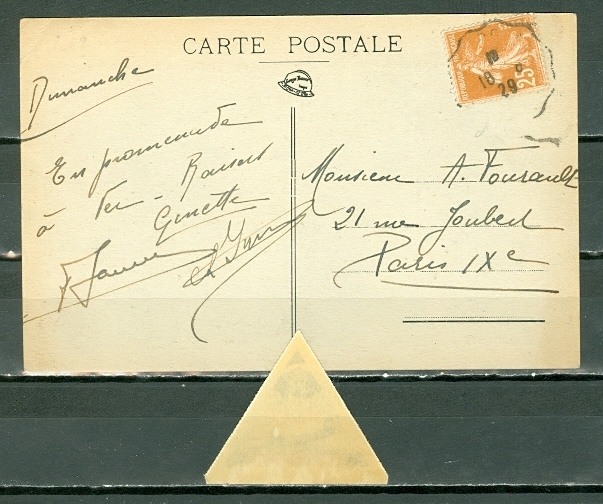 CARTE POSTALE
Dimanche
En promenade
à Ver-
Ginette
Monsieur A. Fourault
21 rue Joubert
Paris IXe
25
18
29